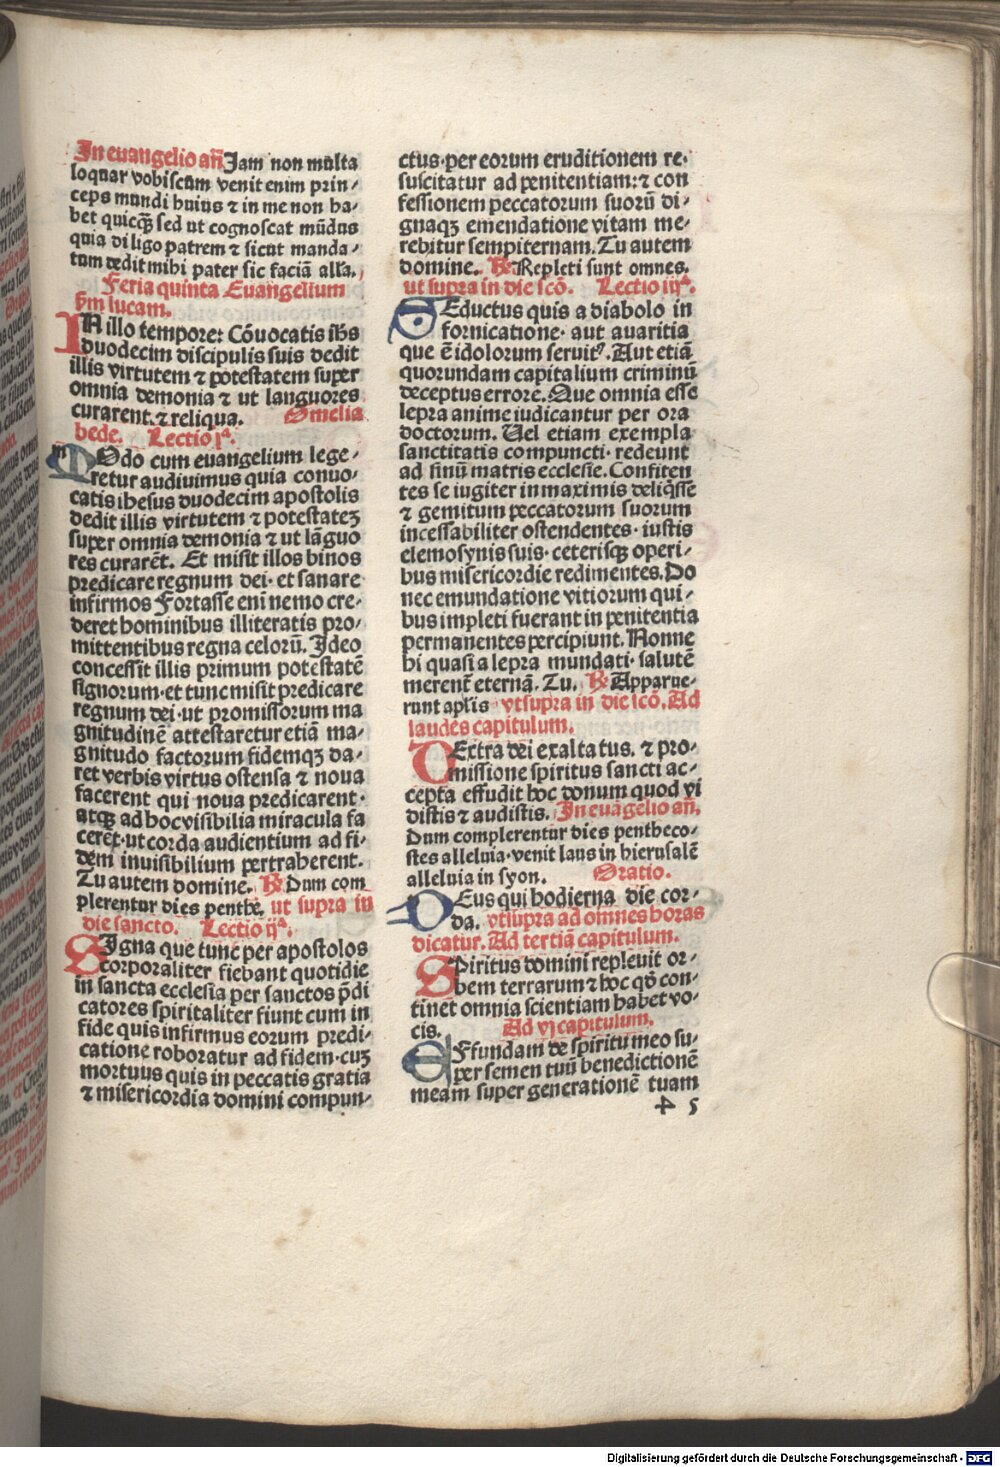 In euangelio añ Jam non multa
loquar vobiscum venit enim prin⸗
ceps mundi huius ⁊ in me non ha⸗
bet quicq̃ꝫ sed ut cognoscat mũdus
quia diligo patrem ⁊ sicut manda⸗
tum dedit mihi pater sic faciã alľa.
Feria quinta Euangelium
ẜm lucam.
IN illo tempore: Cõuocatis ihs
duodecim discipulis suis dedit
illis virtutem ⁊ potestatem super
omnia demonia ⁊ ut languores
curarent. ⁊ reliqua. Omelia
bede. Lectio jª.
MOdo cum euangelium lege⸗
retur audiuimus quia conuo⸗
catis ihesus duodecim apostolis
dedit illis virtutem ⁊ potestateꝫ
super omnia demonia ⁊ ut lãguo
res curarẽt. Et misit illos binos
predicare regnum dei· et sanare
infirmos Fortasse eni nemo cre⸗
deret hominibus illiteratis pro⸗
mittentibus regna celorũ. Ideo
concessit illis primum potestatẽ
signorum·et tunc misit predicare
regnum dei·ut promissorum ma
gnitudinẽ attestaretur etiã ma⸗
gnitudo factorum fidemqꝫ da⸗
ret verbis virtus ostensa ⁊ noua
facerent qui noua predicarent·
atqꝫ ad hoc visibilia miracula fa
cerẽt·ut corda audientium ad fi⸗
dem inuisibilium pertraherent.
Tu autem domine. ℟ Dum com
plerentur dies penthẽ. ut supra in
die sancto. Lectio ijª.
SIgna que tunc per apostolos
corporaliter fiebant quotidie
in sancta ecclesia per sanctos p̃di
catores spiritaliter fiunt cum in
fide quis infirmus eorum predi⸗
catione roboratur ad fidem·cuꝫ
mortuus quis in peccatis gratia
⁊ misericordia domini compun⸗
ctus·per eorum eruditionem re⸗
suscitatur ad penitentiam:⁊ con
fessionem peccatorum suorũ di⸗
gnaqꝫ emendatione vitam me⸗
rebitur sempiternam. Tu autem
domine. ℟ Repleti sunt omnes.
ut supra in die scõ. Lectio iijª.
SEductus quis a diabolo in
fornicatione· aut auaritia
que ẽ idolorum seruitꝰ. Aut etiã
quorundam capitalium criminũ
deceptus errore. Que omnia esse
lepra anime iudicantur per ora
doctorum. Uel etiam exempla
sanctitatis compuncti· redeunt
ad sinũ matris ecclesie. Confiten
tes se iugiter in maximis deliq̃sse
⁊ gemitum peccatorum suorum
incessabiliter ostendentes· iustis
elemosynis suis· ceterisqꝫ operi⸗
bus misericordie redimentes. Do
nec emundatione vitiorum qui⸗
bus impleti fuerant in penitentia
permanentes percipiunt. Nonne
hi quasi a lepra mundati· salutẽ
merent̃ eternã. Tu. ℟ Apparue⸗
runt apľis vt supra in die scõ. Ad
laudes capitulum.
DExtra dei exaltatus. ⁊ pro⸗
missione spiritus sancti ac⸗
cepta effudit hoc donum quod vi
distis ⁊ audistis. In euãgelio añ.
Dum complerentur dies pentheco⸗
stes alleluia·venit laus in hierusalẽ
alleluia in syon. Oratio.
DEus qui hodierna die cor⸗
da. vt supra ad omnes horas
dicatur. Ad tertiã capitulum.
SPiritus domini repleuit or⸗
bem terrarum ⁊ hoc qđ con⸗
tinet omnia scientiam habet vo⸗
cis. Ad vj capitulum.
EFfundam de spiritu meo su⸗
per semen tuũ ⁊ benedictionẽ
meam super generationẽ tuam
4 5
Digitalisierung gefördert durch die Deutsche Forschungsgemeinschaft · DFG